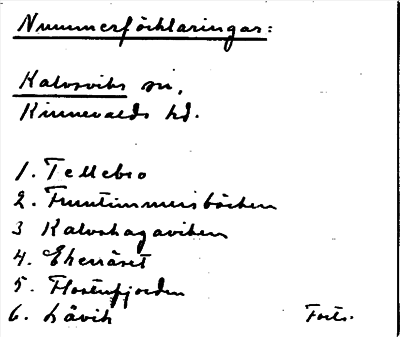 Nummerförklaringar:
Kalvsviks sn,
Kinnevalds hd.
1. Tellebro
2. Fruntimmersbäcken
3 Kalvshagaviken
4. Ekenäset
5. Flostenfjorden
6. Lävik Forts.